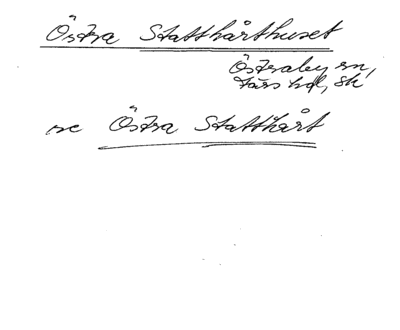 Östra Statthårthuset
Östraby sn,
Färs hd, Sk
se Östra Statthårt